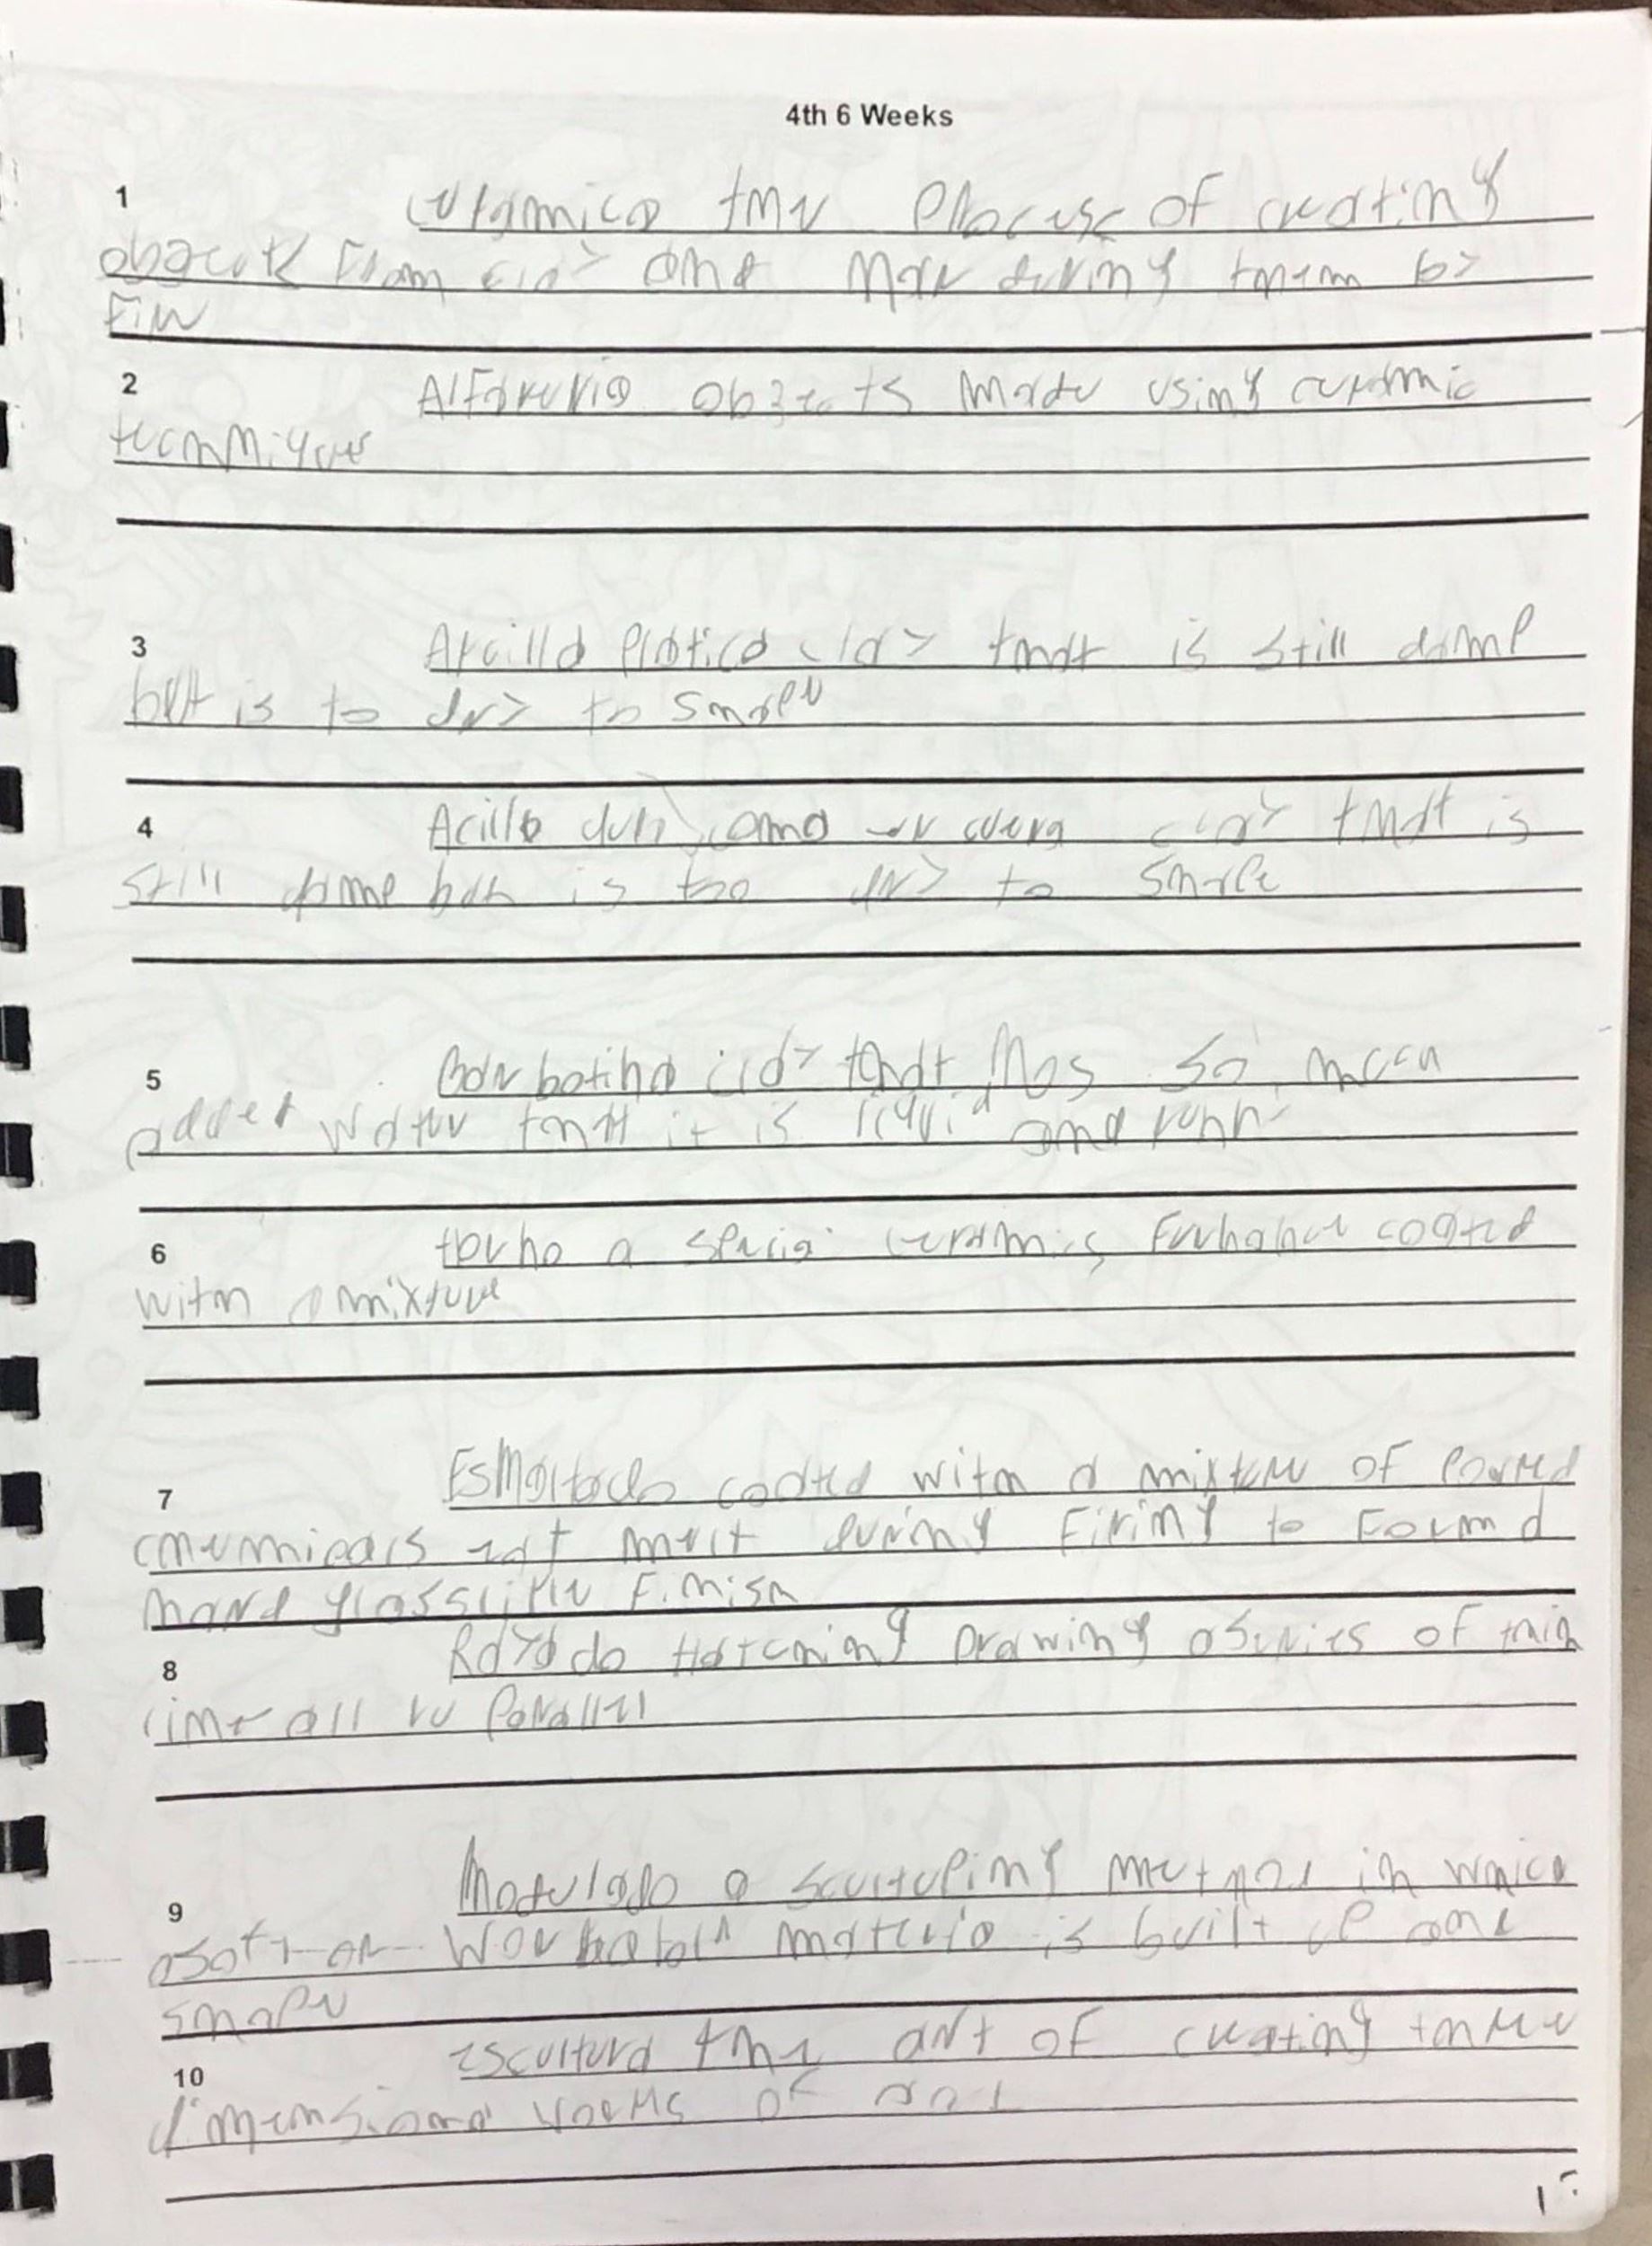 4th 6 Weeks
1 ceramica the Process of creating
objects From clay and harddening them by
Fire
2 Alfareria objects made using ceramic
techniques
3 Arcilla Plastica clay that is still damp
but is to dry to shape
4 Acilla dura como cuera clay that is
still damp but is too dry to shape
5 Barbotina clay that has so much
added water that it is liquid and runny
6 horno a special ceramics Furnance coated
with a mixture
7 Esmaltado coated with a mixture of
chemicals melt during Firing to Form d
hard glasslike Finish
8 Rayado Hatching Drawing a series of thin
line all to Parallel
9 Modulado a sculptuping method in which
a soft or workable material is built up and
shape
10 escultura the art of creating three
dimensional works of art